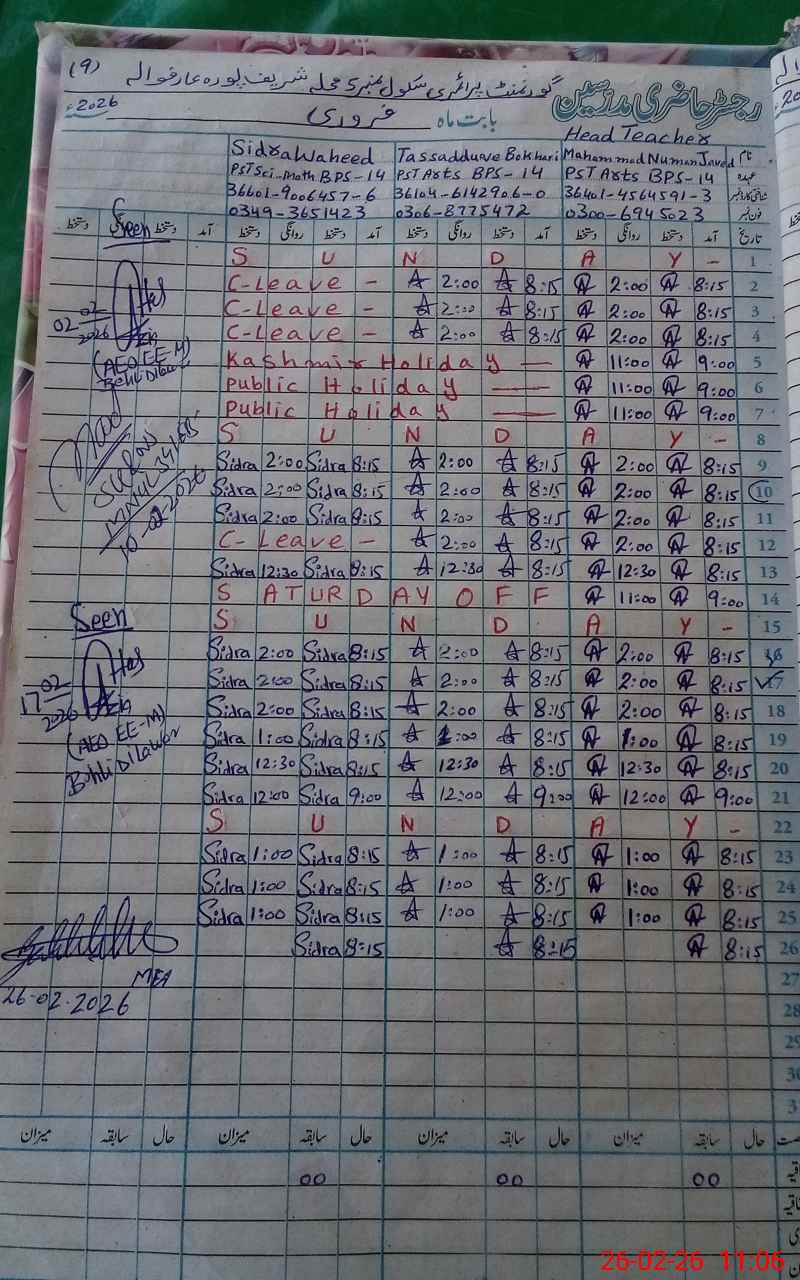 (9) گورنمنٹ پرائمری سکول نمبر 5 محلہ شریف پورہ عارفوالہ
رجسٹر حاضری مدرسین
بابت ماہ فروری 2026ء
Head Teacher
Sidra Waheed Tassadduve Bokhari Mahammad Numan Javed نام
PST Sci-Math BPS-14 PST Arts BPS-14 PST Arts BPS-14 عہدہ
36601-9006457-6 36104-6142906-0 36401-4564591-3 شناختی کارڈ نمبر
0349-3651423 0306-8775472 0300-6945023 فون نمبر
دستخط Seen دستخط آمد دستخط روانگی دستخط آمد دستخط روانگی دستخط آمد دستخط روانگی دستخط آمد تاریخ
S U N D A Y - 1
C-Leave - 2:00 8:15 2:00 8:15 2
C-Leave - 2:00 8:15 2:00 8:15 3
C-Leave - 2:00 8:15 2:00 8:15 4
Kashmir Holiday — 11:00 9:00 5
Public Holiday — 11:00 9:00 6
Public Holiday — 11:00 9:00 7
S U N D A Y - 8
Sidra 2:00 Sidra 8:15 2:00 8:15 2:00 8:15 9
Sidra 2:00 Sidra 8:15 2:00 8:15 2:00 8:15 10
Sidra 2:00 Sidra 8:15 2:00 8:15 2:00 8:15 11
C-Leave - 2:00 8:15 2:00 8:15 12
Sidra 12:30 Sidra 8:15 12:30 8:15 12:30 8:15 13
SATURDAY OFF 11:00 9:00 14
S U N D A Y - 15
Sidra 2:00 Sidra 8:15 2:00 8:15 2:00 8:15 16
Sidra 2:00 Sidra 8:15 2:00 8:15 2:00 8:15 17
Sidra 2:00 Sidra 8:15 2:00 8:15 2:00 8:15 18
Sidra 1:00 Sidra 8:15 1:00 8:15 1:00 8:15 19
Sidra 12:30 Sidra 8:15 12:30 8:15 12:30 8:15 20
Sidra 12:00 Sidra 9:00 12:00 9:00 12:00 9:00 21
S U N D A Y - 22
Sidra 1:00 Sidra 8:15 1:00 8:15 1:00 8:15 23
Sidra 1:00 Sidra 8:15 1:00 8:15 1:00 8:15 24
Sidra 1:00 Sidra 8:15 1:00 8:15 1:00 8:15 25
Sidra 8:15 8:15 8:15 26
27
28
29
30
02-02-2026
(AEO EE-M)
Behli Dilawar
10-02-2026
Seen
17-02-2026
(AEO EE-M)
Behli Dilawar
MEA
26-02-2026
میزان سابقہ حال میزان سابقہ حال میزان سابقہ حال میزان سابقہ حال
00 00 00
26-02-26 11:06